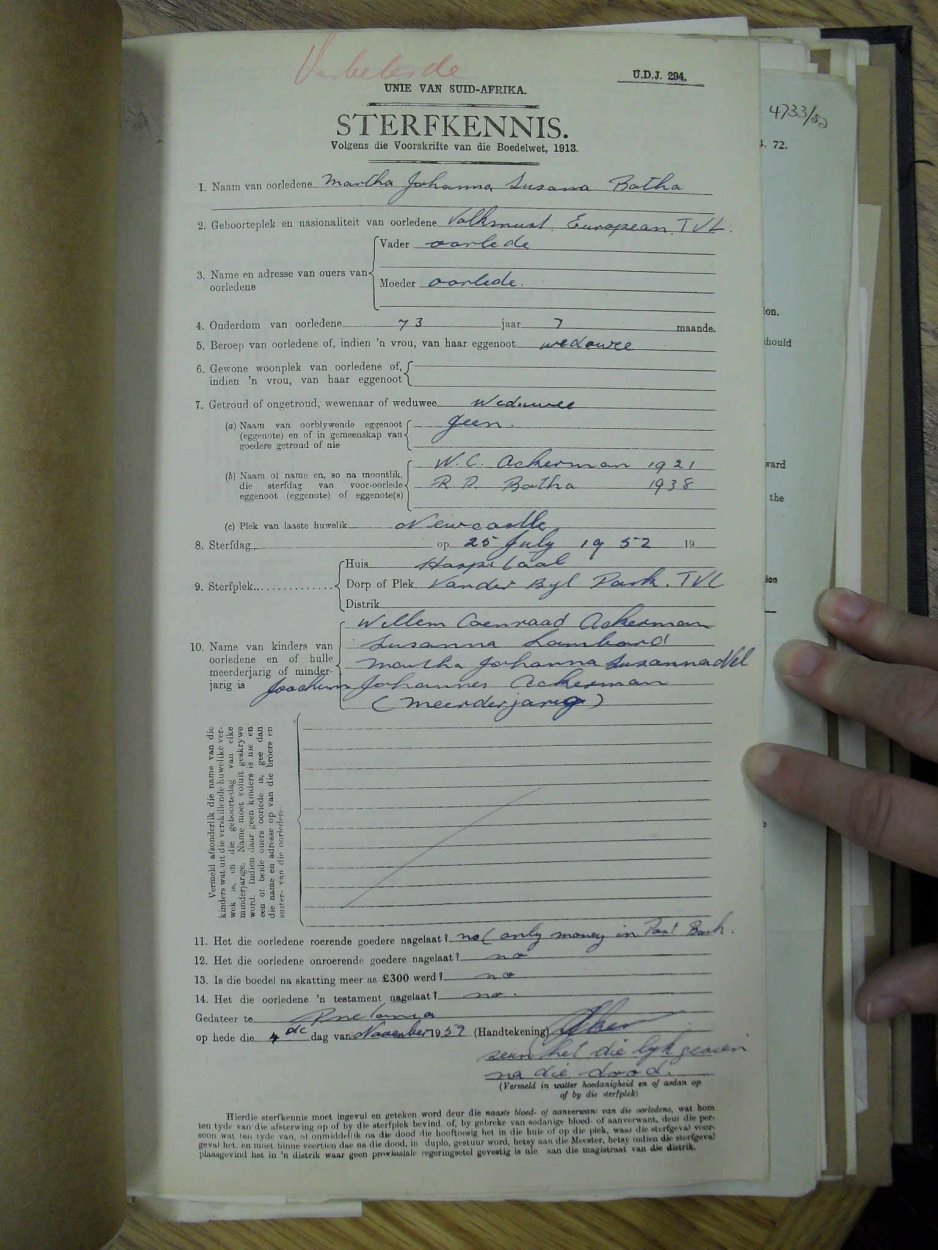 Verbeterde
U.D.J. 294.
4733/52
UNIE VAN SUID-AFRIKA.
STERFKENNIS.
Volgens die Voorskrifte van die Boedelwet, 1913.
1. Naam van oorledene Martha Johanna Susana Botha
2. Geboorteplek en nasionaliteit van oorledene Volksrust. European. TVL.
3. Name en adresse van ouers van oorledene
Vader oorlede
Moeder oorlede.
4. Ouderdom van oorledene 73 jaar 7 maande.
5. Beroep van oorledene of, indien 'n vrou, van haar eggenoot weduwee
6. Gewone woonplek van oorledene of, indien 'n vrou, van haar eggenoot
7. Getroud of ongetroud, wewenaar of weduwee Weduwee
(a) Naam van oorblywende eggenoot geen.
(eggenote) en of in gemeenskap van
goedere getroud of nie
(b) Naam of name en, so na moontlik, W. C. Ackerman 1921
die sterfdag van voor-oorlede R. D. Botha 1938
eggenoot (eggenote) of eggenote(s)
(c) Plek van laaste huwelik Newcastle
8. Sterfdag op 25 July 1952 19
9. Sterfplek
Huis Hospitaal
Dorp of Plek Van der Byl Park. TVL
Distrik
10. Name van kinders van oorledene en of hulle meerderjarig of minderjarig is
Willem Coenraad Ackerman
Susanna Lombard
Martha Johanna Susanna Nel
Joachim Johannes Ackerman
(meerderjarig)
Vermeld afsonderlik die name van die
kinders wat uit die verskillende huwelike ver-
wek is, en die geboortedag van elke
minderjarige. Name moet voluit geskrywe
word. Indien daar geen kinders is nie en
een of beide ouers oorlede is, gee dan
die name en adresse op van die broers en
susters van die oorledene.
11. Het die oorledene roerende goedere nagelaat? no (only money in Post Bank.
12. Het die oorledene onroerende goedere nagelaat? no
13. Is die boedel na skatting meer as £300 werd? no
14. Het die oorledene 'n testament nagelaat? no.
Gedateer te Pretoria
op hede die 4 de dag van November 1952 (Handtekening)
seun het die lyk gesien
na die dood.
(Vermeld in watter hoedanigheid en of aldan op
of by die sterfplek)
Hierdie sterfkennis moet ingevul en geteken word deur die naaste bloed- of aanverwant van die oorledene, wat hom
ten tyde van die afsterwing op of by die sterfplek bevind, of, by gebreke van sodanige bloed- of aanverwant, deur die per-
soon wat ten tyde van, of onmiddellik na die dood die hooftoesig het in die huis of op die plek, waar die sterfgeval voor-
geval het, en moet binne veertien dae na die dood, in duplo, gestuur word, hetsy aan die Meester, hetsy indien die sterfgeval
plaasgevind het in 'n distrik waar geen provinsiale regeringsetel gevestig is nie aan die magistraat van die distrik.